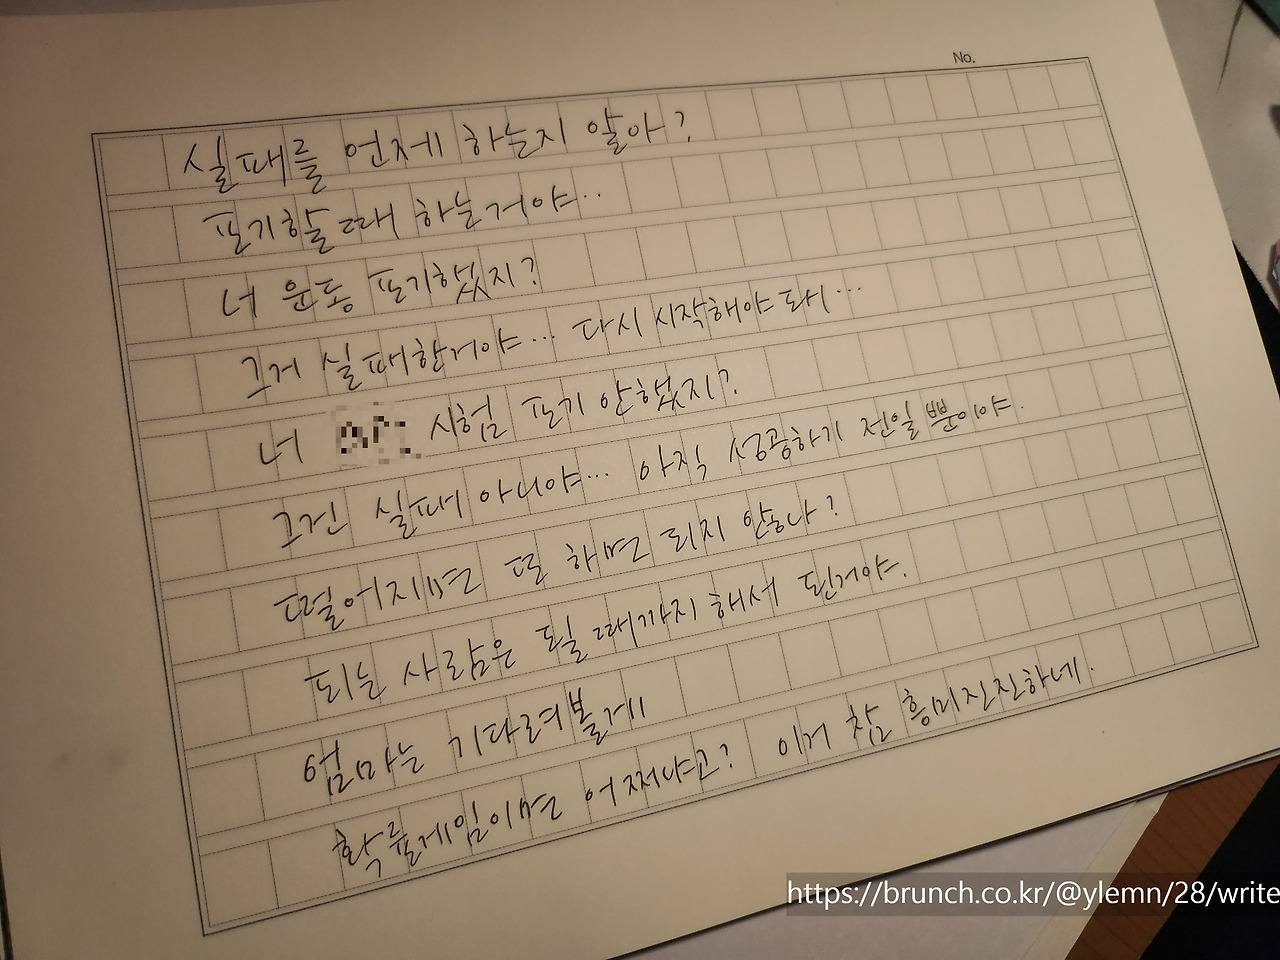 No.
실패를 언제 하는지 알아?
포기할때 하는거야..
너 운동 포기했지?
그거 실패한거야... 다시 시작해야 돼...
너 시험 포기 안했지?
그건 실패 아니야... 아직 성공하기 전일 뿐이야.
떨어지면 또 하면 되지 안농나?
되는 사람은 될 때까지 해서 된거야.
엄마는 기다려볼게
확률게임이면 어쩌냐고? 이거 참 흥미진진하네.
https://brunch.co.kr/@ylemn/28/write